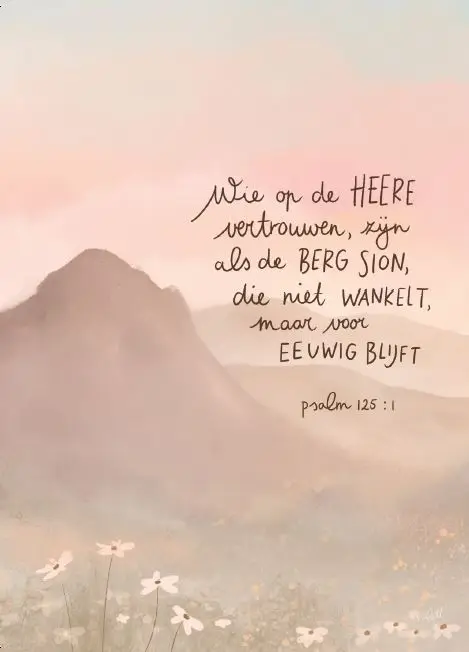 Wie op de HEERE
vertrouwen, zijn
als de BERG SION,
die niet WANKELT,
maar voor
EEUWIG BLIJFT
psalm 125 : 1